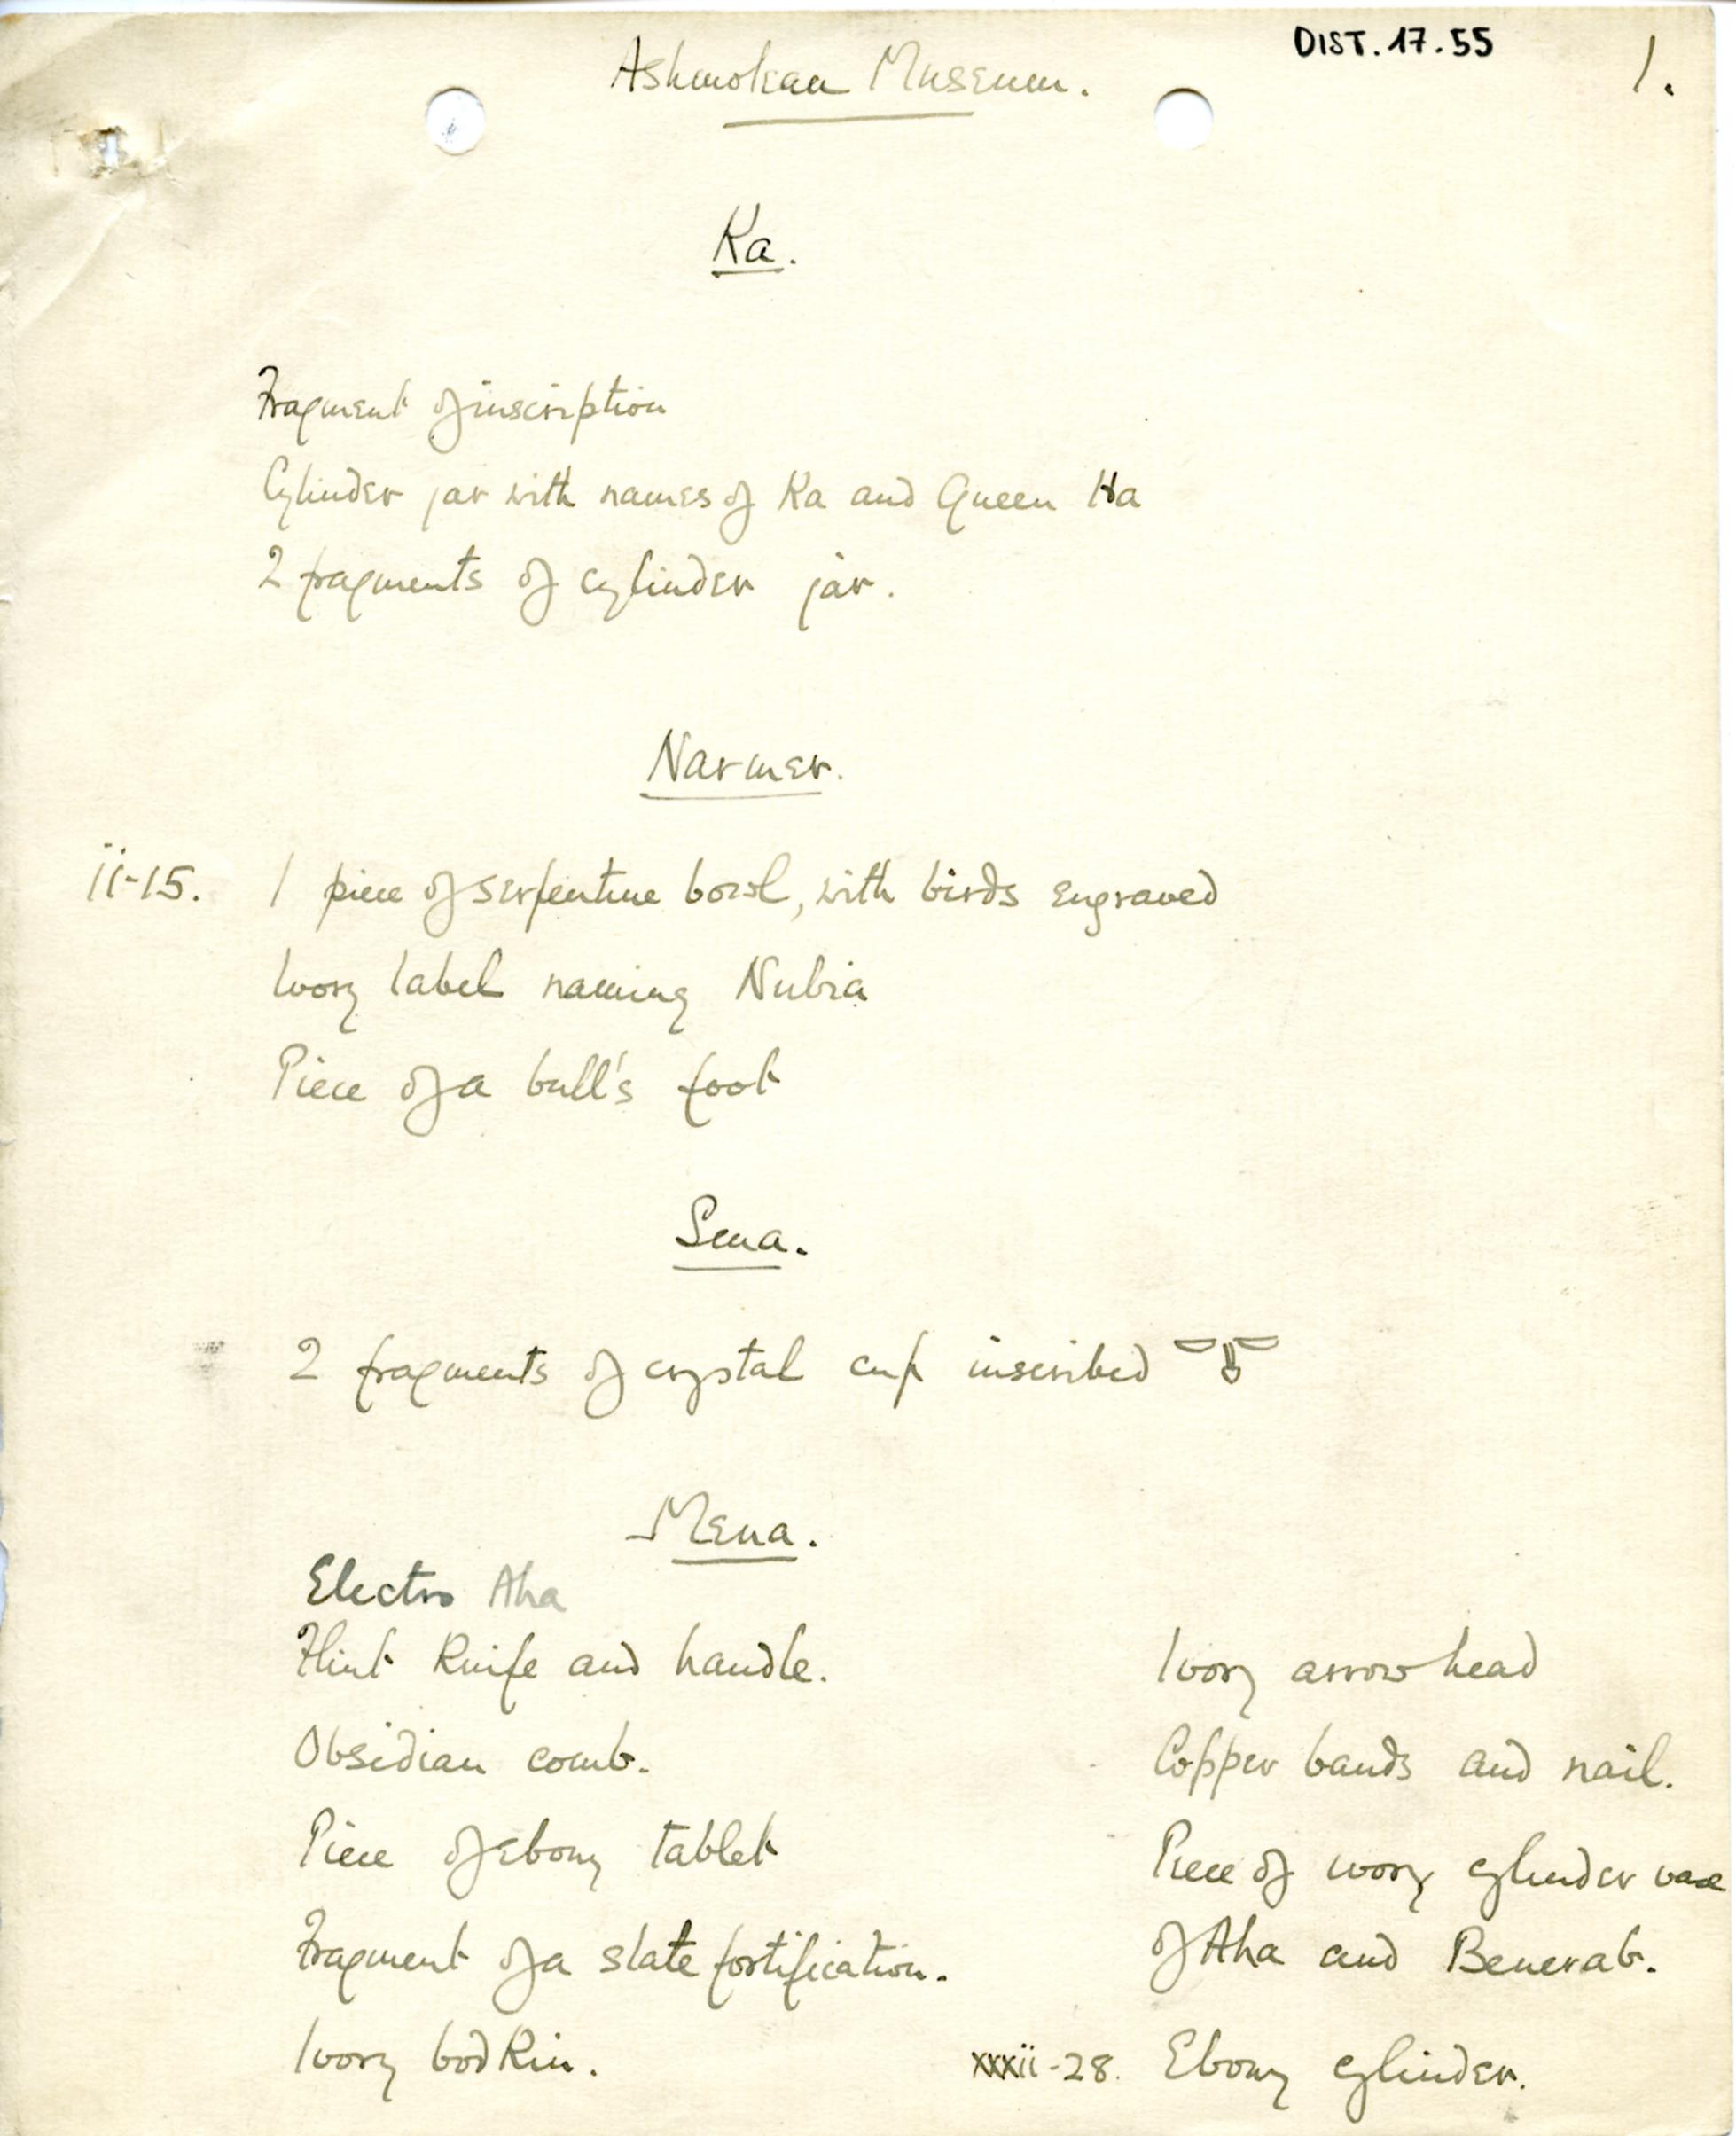 DIST. 17. 55
1.
Ashmolean Museum.
Ka.
Fragment of inscription
Cylinder jar with names of Ka and Queen Ha
2 fragments of cylinder jar.
Narmer.
ii-15. 1 piece of serpentine bowl, with birds engraved
Ivory label naming Nubia
Piece of a bull's foot
Sma.
2 fragments of crystal cup inscribed
Mena.
Electro Aha
Flint Knife and handle.
Obsidian comb.
Piece of ebony tablet
Fragment of a slate fortification.
Ivory bodkin.
Ivory arrow head
Copper bands and nail.
Piece of ivory cylinder vase
of Aha and Benerab.
xxxii-28. Ebony cylinder.